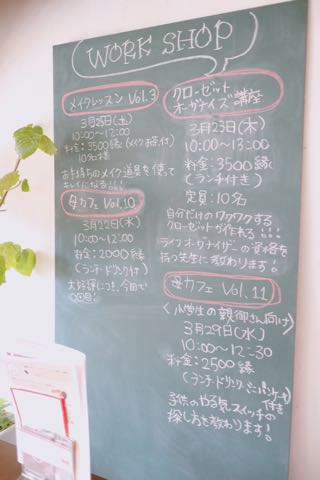 WORK SHOP
メイクレッスン Vol.3
3月25日(土)
10:00〜12:00
料金:3500縁(メイクお茶付)
10名様
お手持ちのメイク道具を使って
キレイになる!!!
母カフェ Vol.10
3月22日(水)
10:00〜12:00
料金:2000縁
(ランチ・ドリンク付)
大好評につき、今回で
10回目!
クローゼット
オーガナイズ講座
3月23日(木)
10:00〜13:00
料金:3500縁
(ランチ付き)
定員:10名
自分だけのワクワクする
クローゼットが作れる!!!
ライフオーガナイザーの資格を
持つ先生に教わります!
母カフェ Vol.11
(小学生の親御さん向け)
3月29日(水)
10:00〜12:30
料金:2500縁
(ランチ・ドリンク・ミニパンケーキ付き)
子供のやる気スイッチの
探し方を教わります!